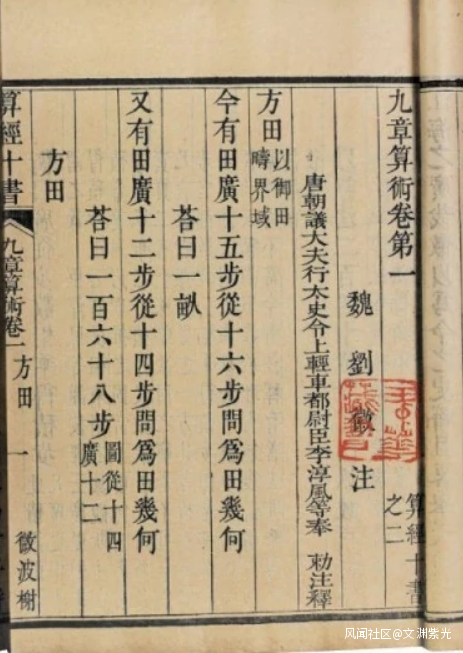 九章算術卷第一
算經十書
之二
魏劉徽注
唐朝議大夫行太史令上輕車都尉臣李淳風等奉 勑注釋
方田以御田
疇界域
今有田廣十五步從十六步問爲田幾何
荅曰一畝
又有田廣十二步從十四步問爲田幾何
荅曰一百六十八步圖從十四
廣十二
方田
算經十書
九章算術卷一
方田
一
微波榭
风闻社区@文渊紫光